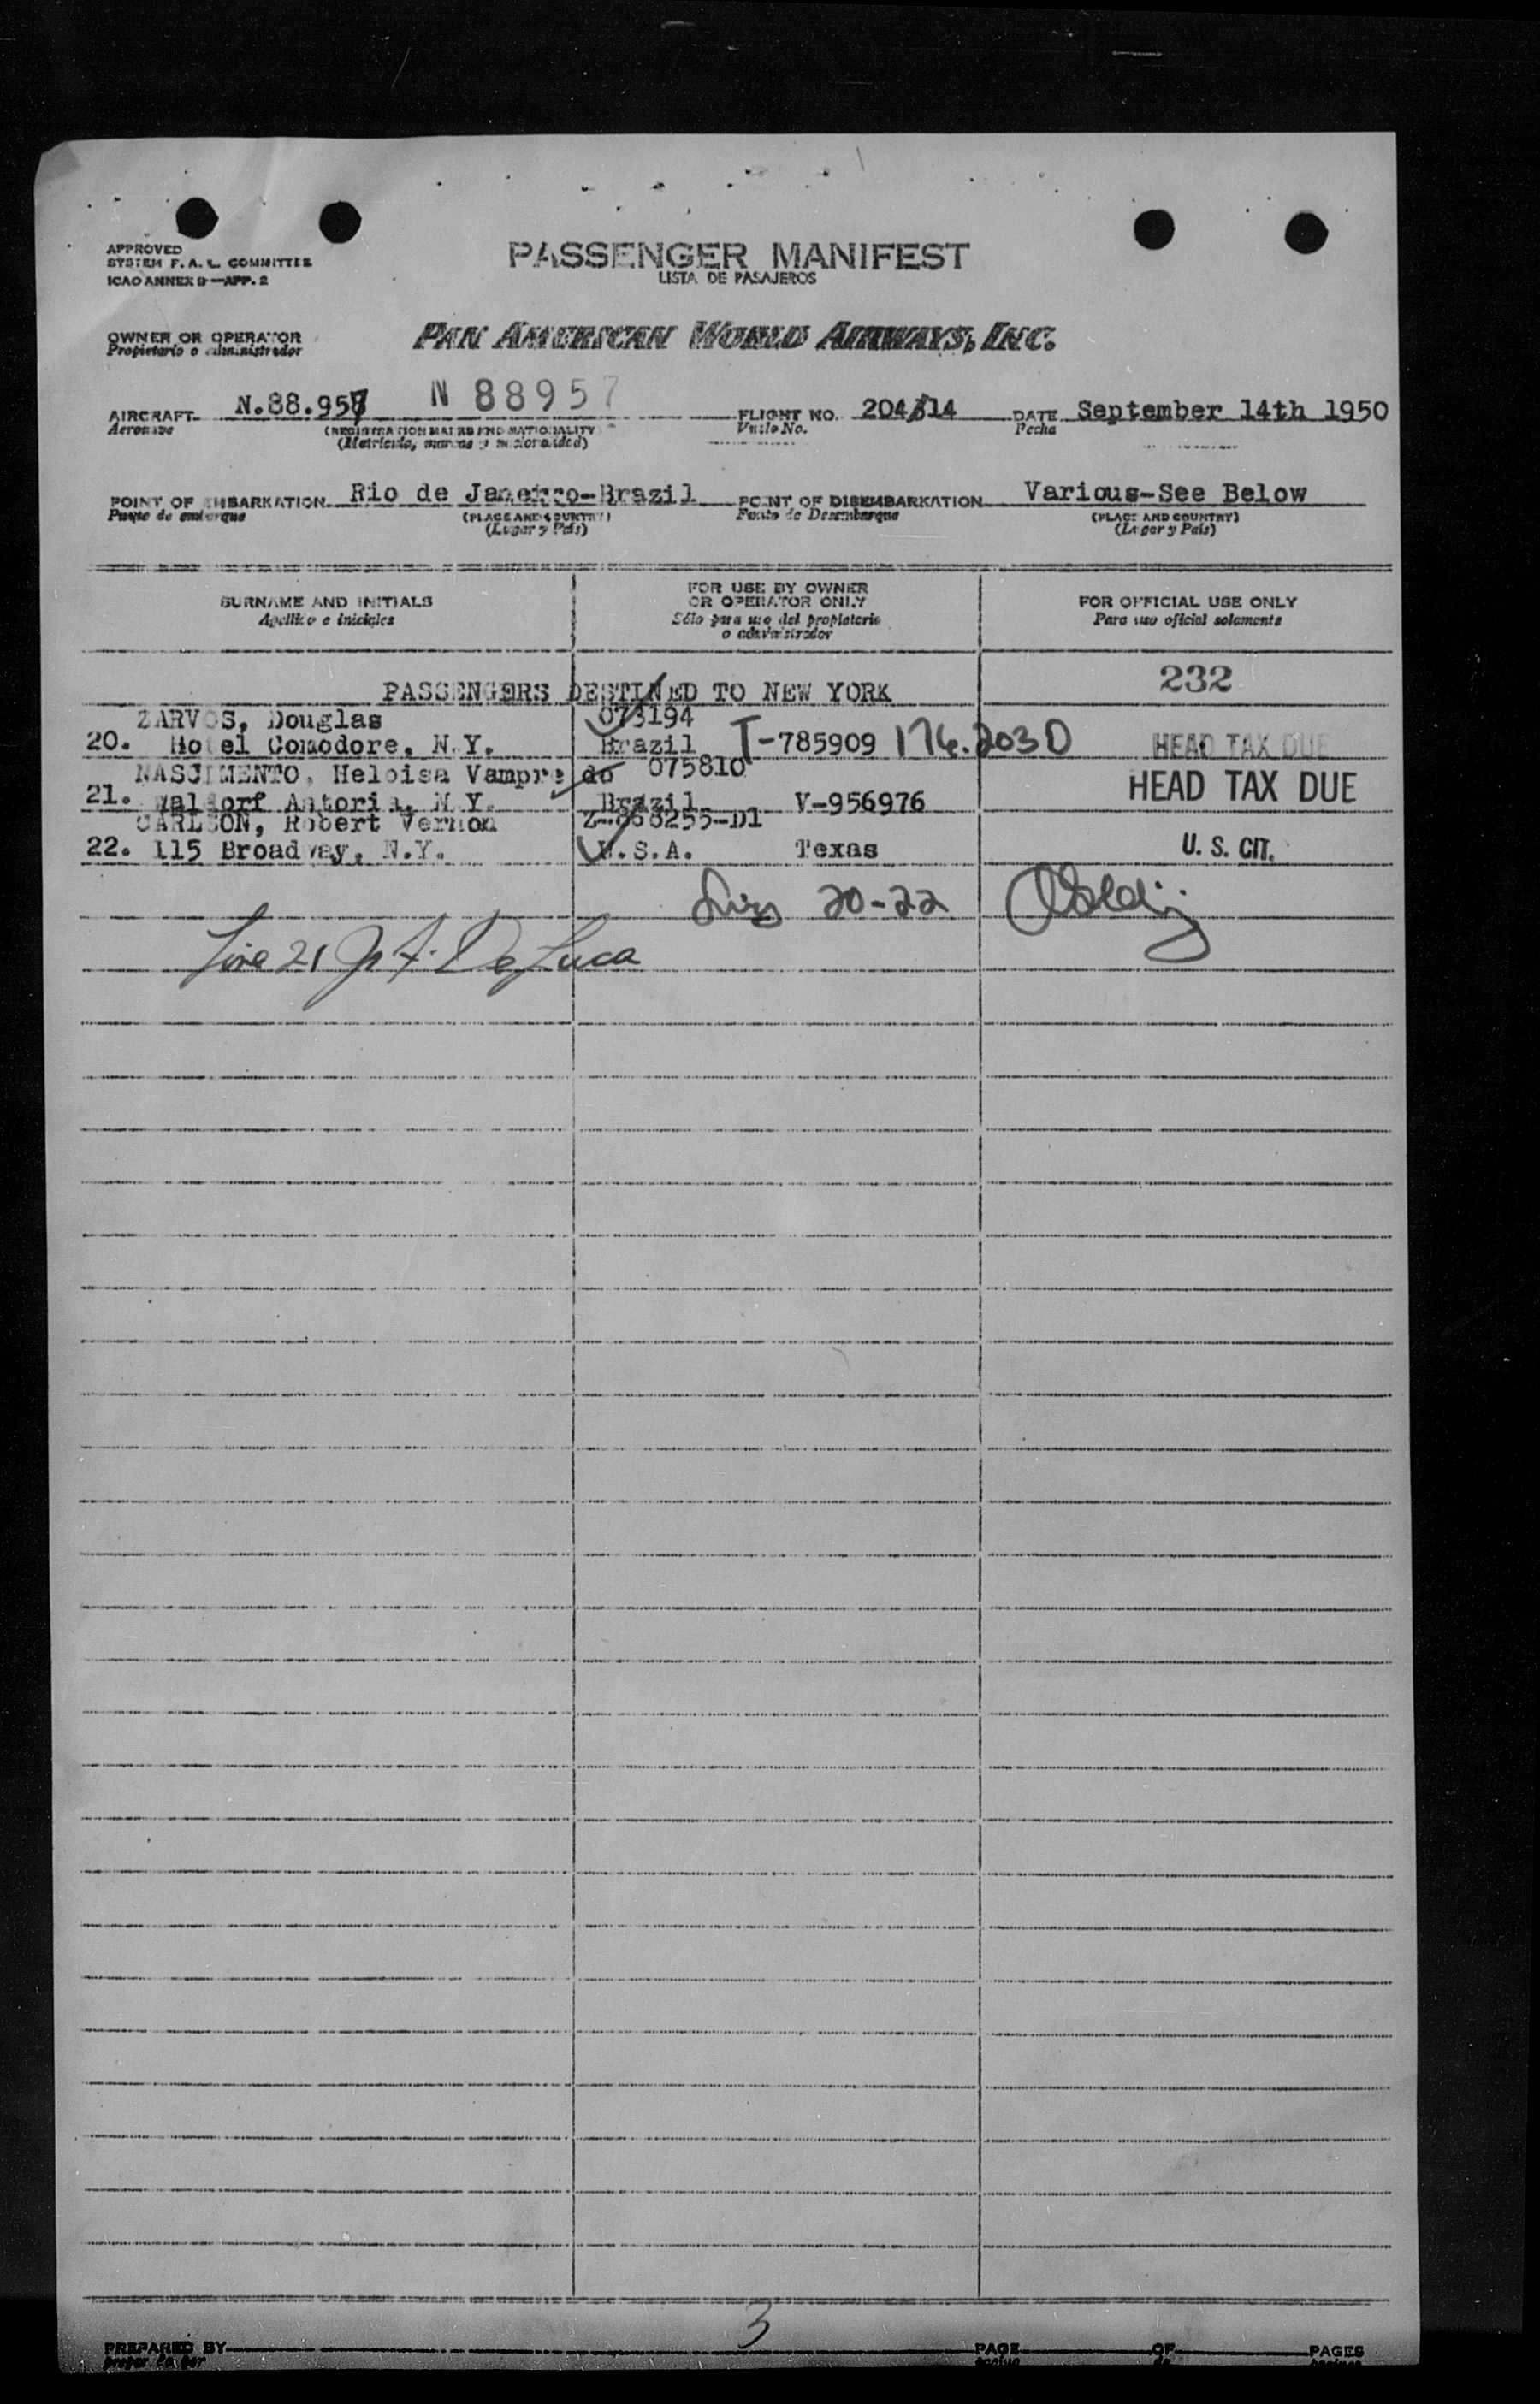 APPROVED
SYSTEM F. A. L. COMMITTEE
ICAO ANNEX 9—APP. 2
PASSENGER MANIFEST
LISTA DE PASAJEROS
OWNER OR OPERATOR
Propietario o administrador
PAN AMERICAN WORLD AIRWAYS, INC.
AIRCRAFT N.88.957 N 88957 FLIGHT NO. 204/14 DATE September 14th 1950
Aeronave (REGISTRATION MARKS AND NATIONALITY) Vuelo No. Fecha
(Matricula, marcas y nacionalidad)
POINT OF EMBARKATION Rio de Janeiro-Brazil POINT OF DISEMBARKATION Various-See Below
Punto de embarque (PLACE AND COUNTRY) Punto de Desembarque (PLACE AND COUNTRY)
(Lugar y País) (Lugar y País)
SURNAME AND INITIALS
Apellido e iniciales
FOR USE BY OWNER
OR OPERATOR ONLY
Sólo para uso del propietario
o administrador
FOR OFFICIAL USE ONLY
Para uso oficial solamente
PASSENGERS DESTINED TO NEW YORK 232
ZARVOS, Douglas 073194
20. Hotel Comodore, N.Y. Brazil T-785909 176.2030 HEAD TAX DUE
NASCIMENTO, Heloisa Vampre do 075810 HEAD TAX DUE
21. Waldorf Astoria, N.Y. Brazil V-956976
CARLSON, Robert Vernon Z-868255-D1
22. 115 Broadway, N.Y. U.S.A. Texas U. S. CIT.
20-22
Line 21 De Luca
3
PREPARED BY PAGE OF PAGES